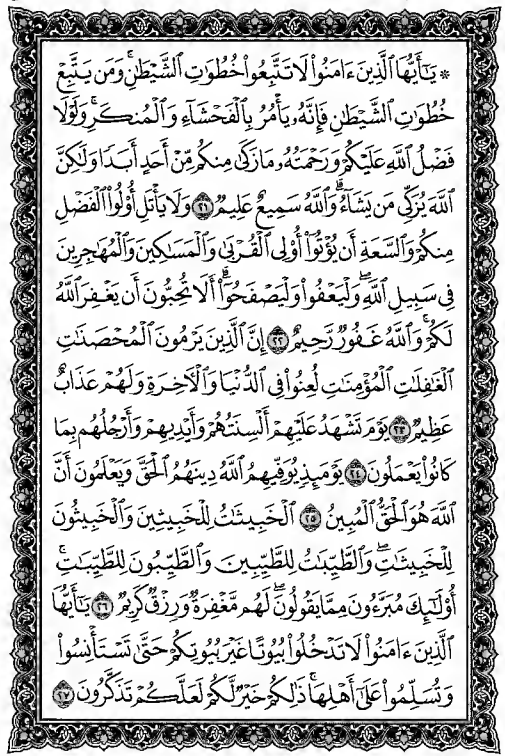 ۞ يَٰٓأَيُّهَا ٱلَّذِينَ ءَامَنُوا۟ لَا تَتَّبِعُوا۟ خُطُوَٰتِ ٱلشَّيْطَٰنِ ۚ وَمَن يَتَّبِعْ
خُطُوَٰتِ ٱلشَّيْطَٰنِ فَإِنَّهُۥ يَأْمُرُ بِٱلْفَحْشَآءِ وَٱلْمُنكَرِ ۚ وَلَوْلَا
فَضْلُ ٱللَّهِ عَلَيْكُمْ وَرَحْمَتُهُۥ مَا زَكَىٰ مِنكُم مِّنْ أَحَدٍ أَبَدًا وَلَٰكِنَّ
ٱللَّهَ يُزَكِّى مَن يَشَآءُ ۗ وَٱللَّهُ سَمِيعٌ عَلِيمٌ ٢١ وَلَا يَأْتَلِ أُو۟لُوا۟ ٱلْفَضْلِ
مِنكُمْ وَٱلسَّعَةِ أَن يُؤْتُوٓا۟ أُو۟لِى ٱلْقُرْبَىٰ وَٱلْمَسَٰكِينَ وَٱلْمُهَٰجِرِينَ
فِى سَبِيلِ ٱللَّهِ ۖ وَلْيَعْفُوا۟ وَلْيَصْفَحُوٓا۟ ۗ أَلَا تُحِبُّونَ أَن يَغْفِرَ ٱللَّهُ
لَكُمْ ۗ وَٱللَّهُ غَفُورٌ رَّحِيمٌ ٢٢ إِنَّ ٱلَّذِينَ يَرْمُونَ ٱلْمُحْصَنَٰتِ
ٱلْغَٰفِلَٰتِ ٱلْمُؤْمِنَٰتِ لُعِنُوا۟ فِى ٱلدُّنْيَا وَٱلْءَاخِرَةِ وَلَهُمْ عَذَابٌ
عَظِيمٌ ٢٣ يَوْمَ تَشْهَدُ عَلَيْهِمْ أَلْسِنَتُهُمْ وَأَيْدِيهِمْ وَأَرْجُلُهُم بِمَا
كَانُوا۟ يَعْمَلُونَ ٢٤ يَوْمَئِذٍ يُوَفِّيهِمُ ٱللَّهُ دِينَهُمُ ٱلْحَقَّ وَيَعْلَمُونَ أَنَّ
ٱللَّهَ هُوَ ٱلْحَقُّ ٱلْمُبِينُ ٢٥ ٱلْخَبِيثَٰتُ لِلْخَبِيثِينَ وَٱلْخَبِيثُونَ
لِلْخَبِيثَٰتِ ۖ وَٱلطَّيِّبَٰتُ لِلطَّيِّبِينَ وَٱلطَّيِّبُونَ لِلطَّيِّبَٰتِ ۚ
أُو۟لَٰٓئِكَ مُبَرَّءُونَ مِمَّا يَقُولُونَ ۖ لَهُم مَّغْفِرَةٌ وَرِزْقٌ كَرِيمٌ ٢٦ يَٰٓأَيُّهَا
ٱلَّذِينَ ءَامَنُوا۟ لَا تَدْخُلُوا۟ بُيُوتًا غَيْرَ بُيُوتِكُمْ حَتَّىٰ تَسْتَأْنِسُوا۟
وَتُسَلِّمُوا۟ عَلَىٰٓ أَهْلِهَا ۚ ذَٰلِكُمْ خَيْرٌ لَّكُمْ لَعَلَّكُمْ تَذَكَّرُونَ ٢٧